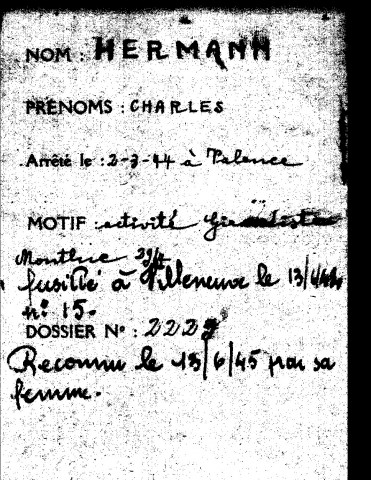 NOM : HERMANN
PRÉNOMS : CHARLES
Arrêté le : 2-3-44 à Valence
MOTIF : activité
Montluc
fusillé à Villeneuve le 13/6/44
n° 15.
DOSSIER N° : 2229
Reconnu le 13/6/45 par sa
femme.